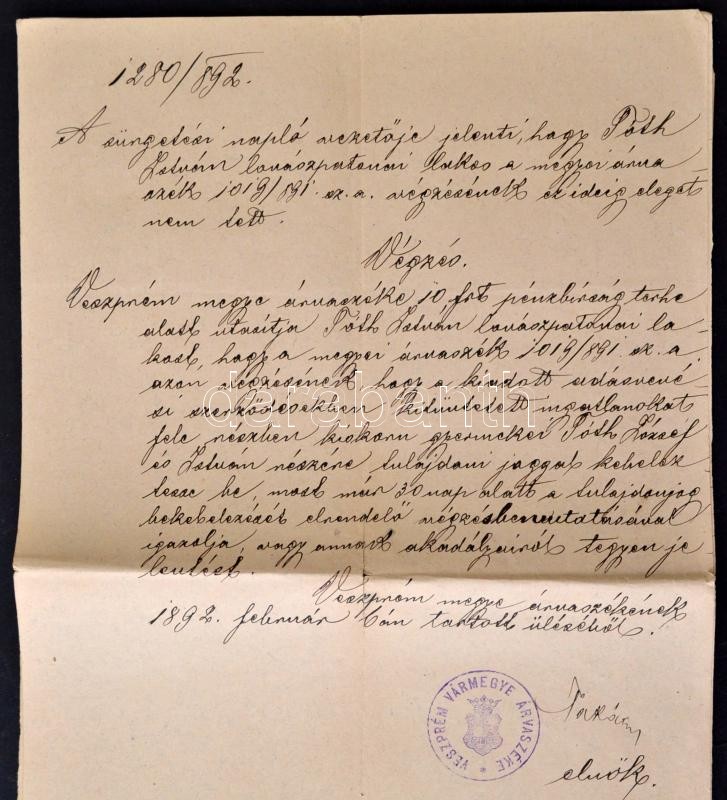 1280/892.
A sürgetési napló vezetője jelenti, hogy Tóth
István lovászpatonai lakos a megyei árva
szék 1019/891. sz. a. végzésének ez ideig eleget
nem tett.
Végzés.
Veszprém megye árvaszéke 10 frt pénzbirság terhe
alatt utasitja Tóth István lovászpatonai la-
kost, hogy a megyei árvaszék 1019/891. sz. a.
azon végzésének, hogy a kiadott adásvevé-
si szerződésekben kitüntetett ingatlanokat
fele részben kiskoru gyermekei Tóth József
és István részére tulajdoni joggal kebelez
tesse be, most már 30 nap alatt a tulajdonjog
bekebelezését elrendelő végzés bemutatásával
igazolja, vagy annak akadályairól tegyen je-
lentést.
Veszprém megye árvaszékének
1892. február 6án tartott üléséből.
VESZPRÉM VÁRMEGYE ÁRVASZÉKE
elnök.
darabanth